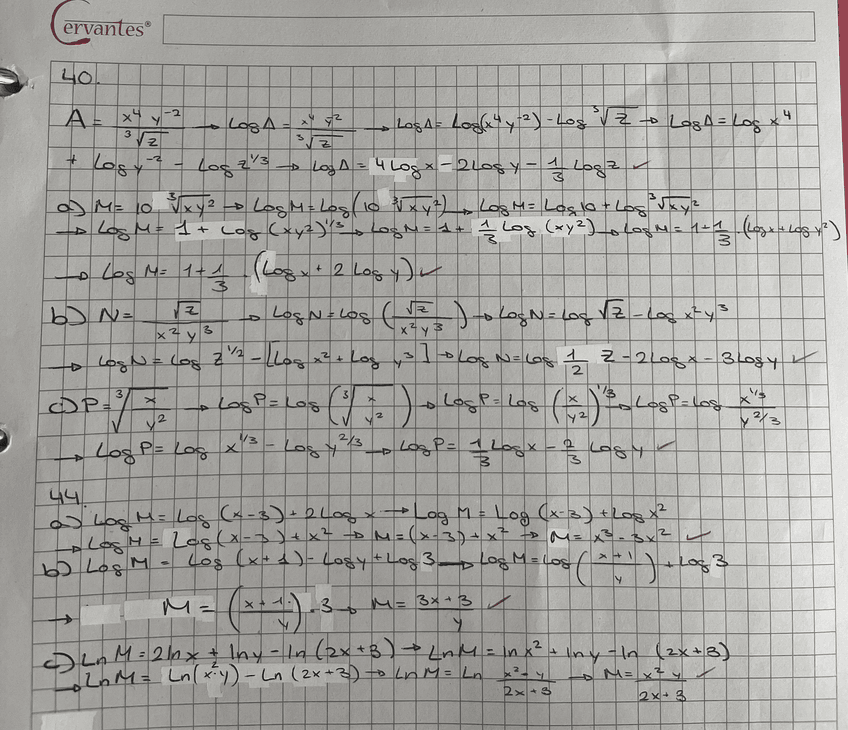 Cervantes®
40.
A = x⁴ y⁻² / ³√z → Log A = x⁴ y² / ³√z → Log A = Log(x⁴ y⁻²) - Log ³√z → Log A = Log x⁴
+ Log y⁻² - Log z^1/3 → Log A = 4 Log x - 2 Log y - 1/3 Log z ✓
a) M = 10 ³√xy² → Log M = Log(10 ³√xy²) → Log M = Log 10 + Log ³√xy²
→ Log M = 1 + Log (xy²)^1/3 → Log M = 1 + 1/3 Log (xy²) → Log M = 1 + 1/3 · (Log x + Log y²)
→ Log M = 1 + 1/3 · (Log x + 2 Log y) ✓
b) N = √z / x² y³ → Log N = Log (√z / x² y³) → Log N = Log √z - Log x² y³
→ Log N = Log z^1/2 - [Log x² + Log y³] → Log N = Log 1/2 z - 2 Log x - 3 Log y ✓
c) P = ³√(x / y²) → Log P = Log (³√(x / y²)) → Log P = Log (x / y²)^1/3 → Log P = Log x^1/3 / y^2/3
→ Log P = Log x^1/3 - Log y^2/3 → Log P = 1/3 Log x - 2/3 Log y ✓
44.
a) Log M = Log (x-3) + 2 Log x → Log M = Log (x-3) + Log x²
→ Log M = Log (x-3) + x² → M = (x-3) + x² → M = x³ - 3x² ✓
b) Log M = Log (x+1) - Log y + Log 3 → Log M = Log (x+1 / y) + Log 3
→ M = (x+1 / y) · 3 → M = 3x+3 / y ✓
c) Ln M = 2 ln x + ln y - ln (2x+3) → Ln M = ln x² + ln y - ln (2x+3)
→ Ln M = Ln(x²·y) - Ln (2x+3) → Ln M = Ln x²·y / 2x+3 → M = x² y / 2x+3 ✓